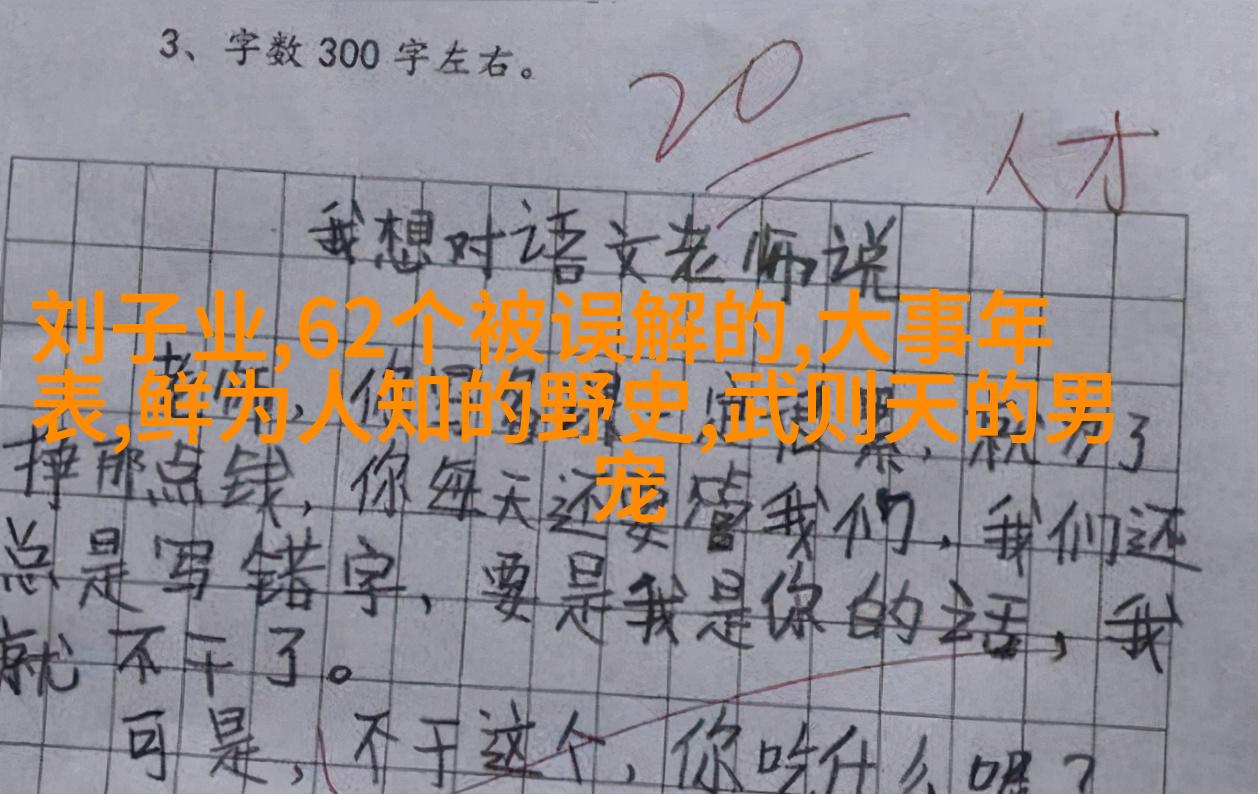 3、字数300字左右。
20
人才
我想对语文老师说
刘子业,62个被误解的,大事年
表,鲜为人知的野史,武则天的男
宠
挣那点钱,你每天还要管我们,我们还
总是写错字,要是我是你的话,我
就不干了。
可是,不干这个,你吃什么呢?